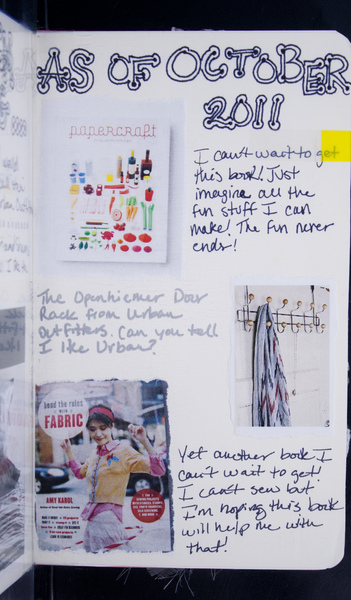 AS OF OCTOBER
2011
papercraft
I can't wait to get
this book! Just
imagine all the
fun stuff I can
make! The fun never
ends!
The Openhiemer Door
Rack from Urban
Outfitters. Can you tell
I like Urban?
bend the rules
WITH
FABRIC
AMY KAROL
Yet another book I
can't wait to get!
I can't sew but
I'm hoping this book
will help me with
that!